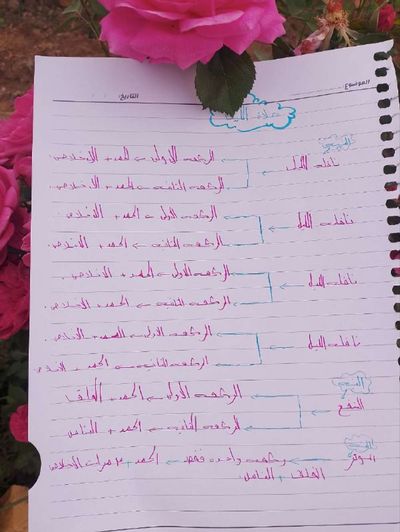 الموضوع: التاريخ:
صلاة الليل
نافلة الليل ← الركعة الأولى ← الحمد + الاخلاص
الركعة الثانية ← الحمد + الاخلاص
نافلة الليل ← الركعة الأولى ← الحمد + الاخلاص
الركعة الثانية ← الحمد + الاخلاص
نافلة الليل ← الركعة الأولى ← الحمد + الاخلاص
الركعة الثانية ← الحمد + الاخلاص
نافلة الليل ← الركعة الأولى ← الحمد + الاخلاص
الركعة الثانية ← الحمد + الاخلاص
الشفع ← الركعة الأولى ← الحمد + الفلق
الركعة الثانية ← الحمد + الناس
الوتر ← ركعة واحدة فقط ← الحمد + ٣ مرات الاخلاص
الفلق + الناس